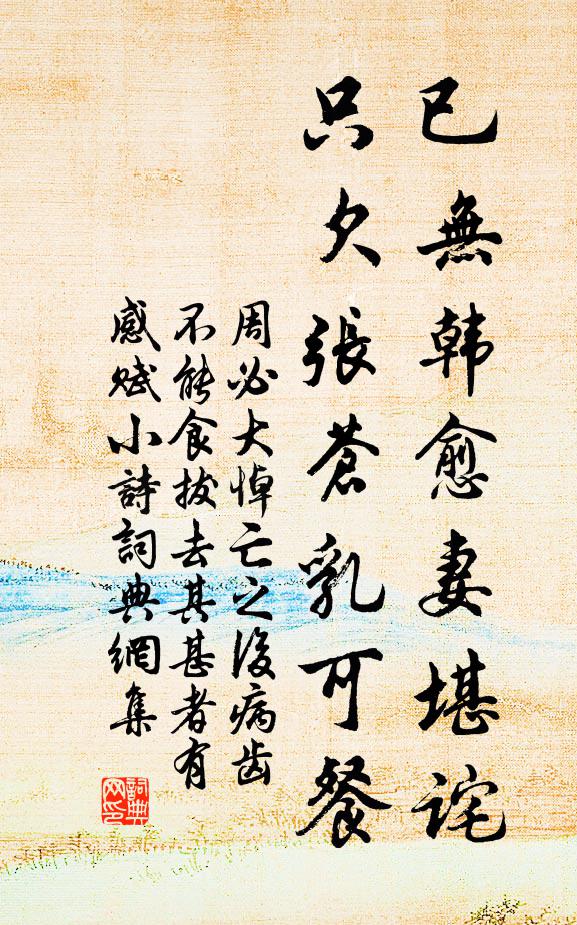 已無韩愈妻堪詫
只欠張蒼乳可餐
周必大悼亡之後病齿
不能食拔去其甚者有
感赋小詩詞典網集
詞典
网印